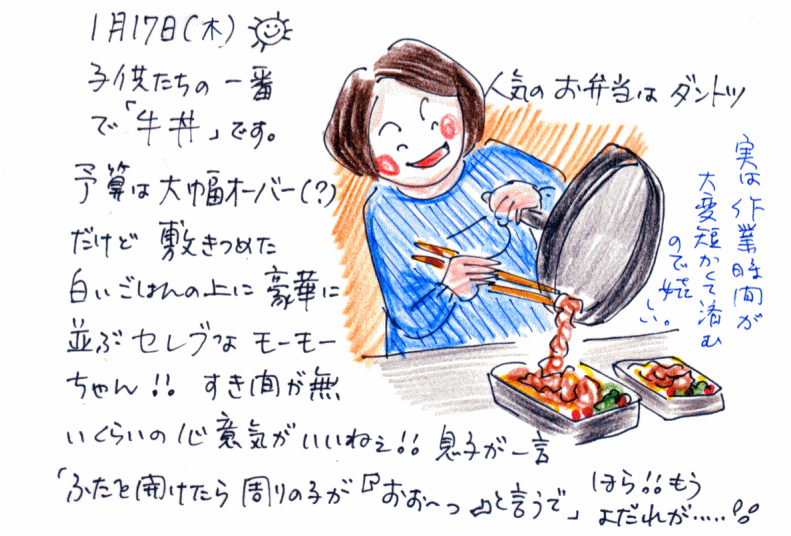 1月17日(木)
子供たちの一番
人気のお弁当は ダントツ
で「牛丼」です。
予算は大幅オーバー(?)
だけど 敷きつめた
白いごはんの上に豪華に
並ぶ セレブな モーモー
ちゃん!! すき間が無
いくらいの心意気がいいねぇ!! 息子が一言
「ふたを開けたら 周りの子が『おお〜っ』と言うで」
ほら!!もう
よだれが.....
実は作業時間が
大変短かくて済む
ので嬉しい。